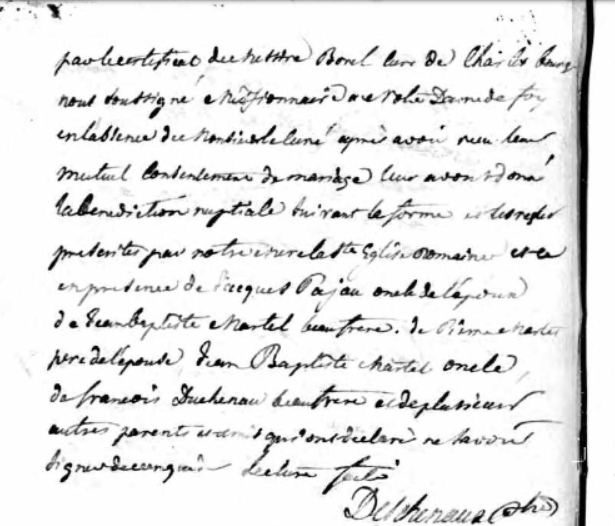 par le certificat de Messire Borel curé de Charlesbourg
nous soussigné Missionnaire de Notre Dame de foy
en l'assence de Monsieur le Curé après avoir reçu leur
mutuel Consentement de mariage leur avons doné
la Benediction nuptiale suivant la forme et les regles
prescrites par notre mere la Ste Eglise Romaine et ce
en presence de Jacques Pajau oncle de l'epoux
de Jean Baptiste Martel beaufrere. de Pierre Martel
pere de l'épouse, Jean Baptiste Martel oncle,
de françois Duchenau beaufrere et de plusieurs
autres parents et amis qui ont declaré ne savoir
signer de ce enquis Lecture faite
Deschenaux ptre